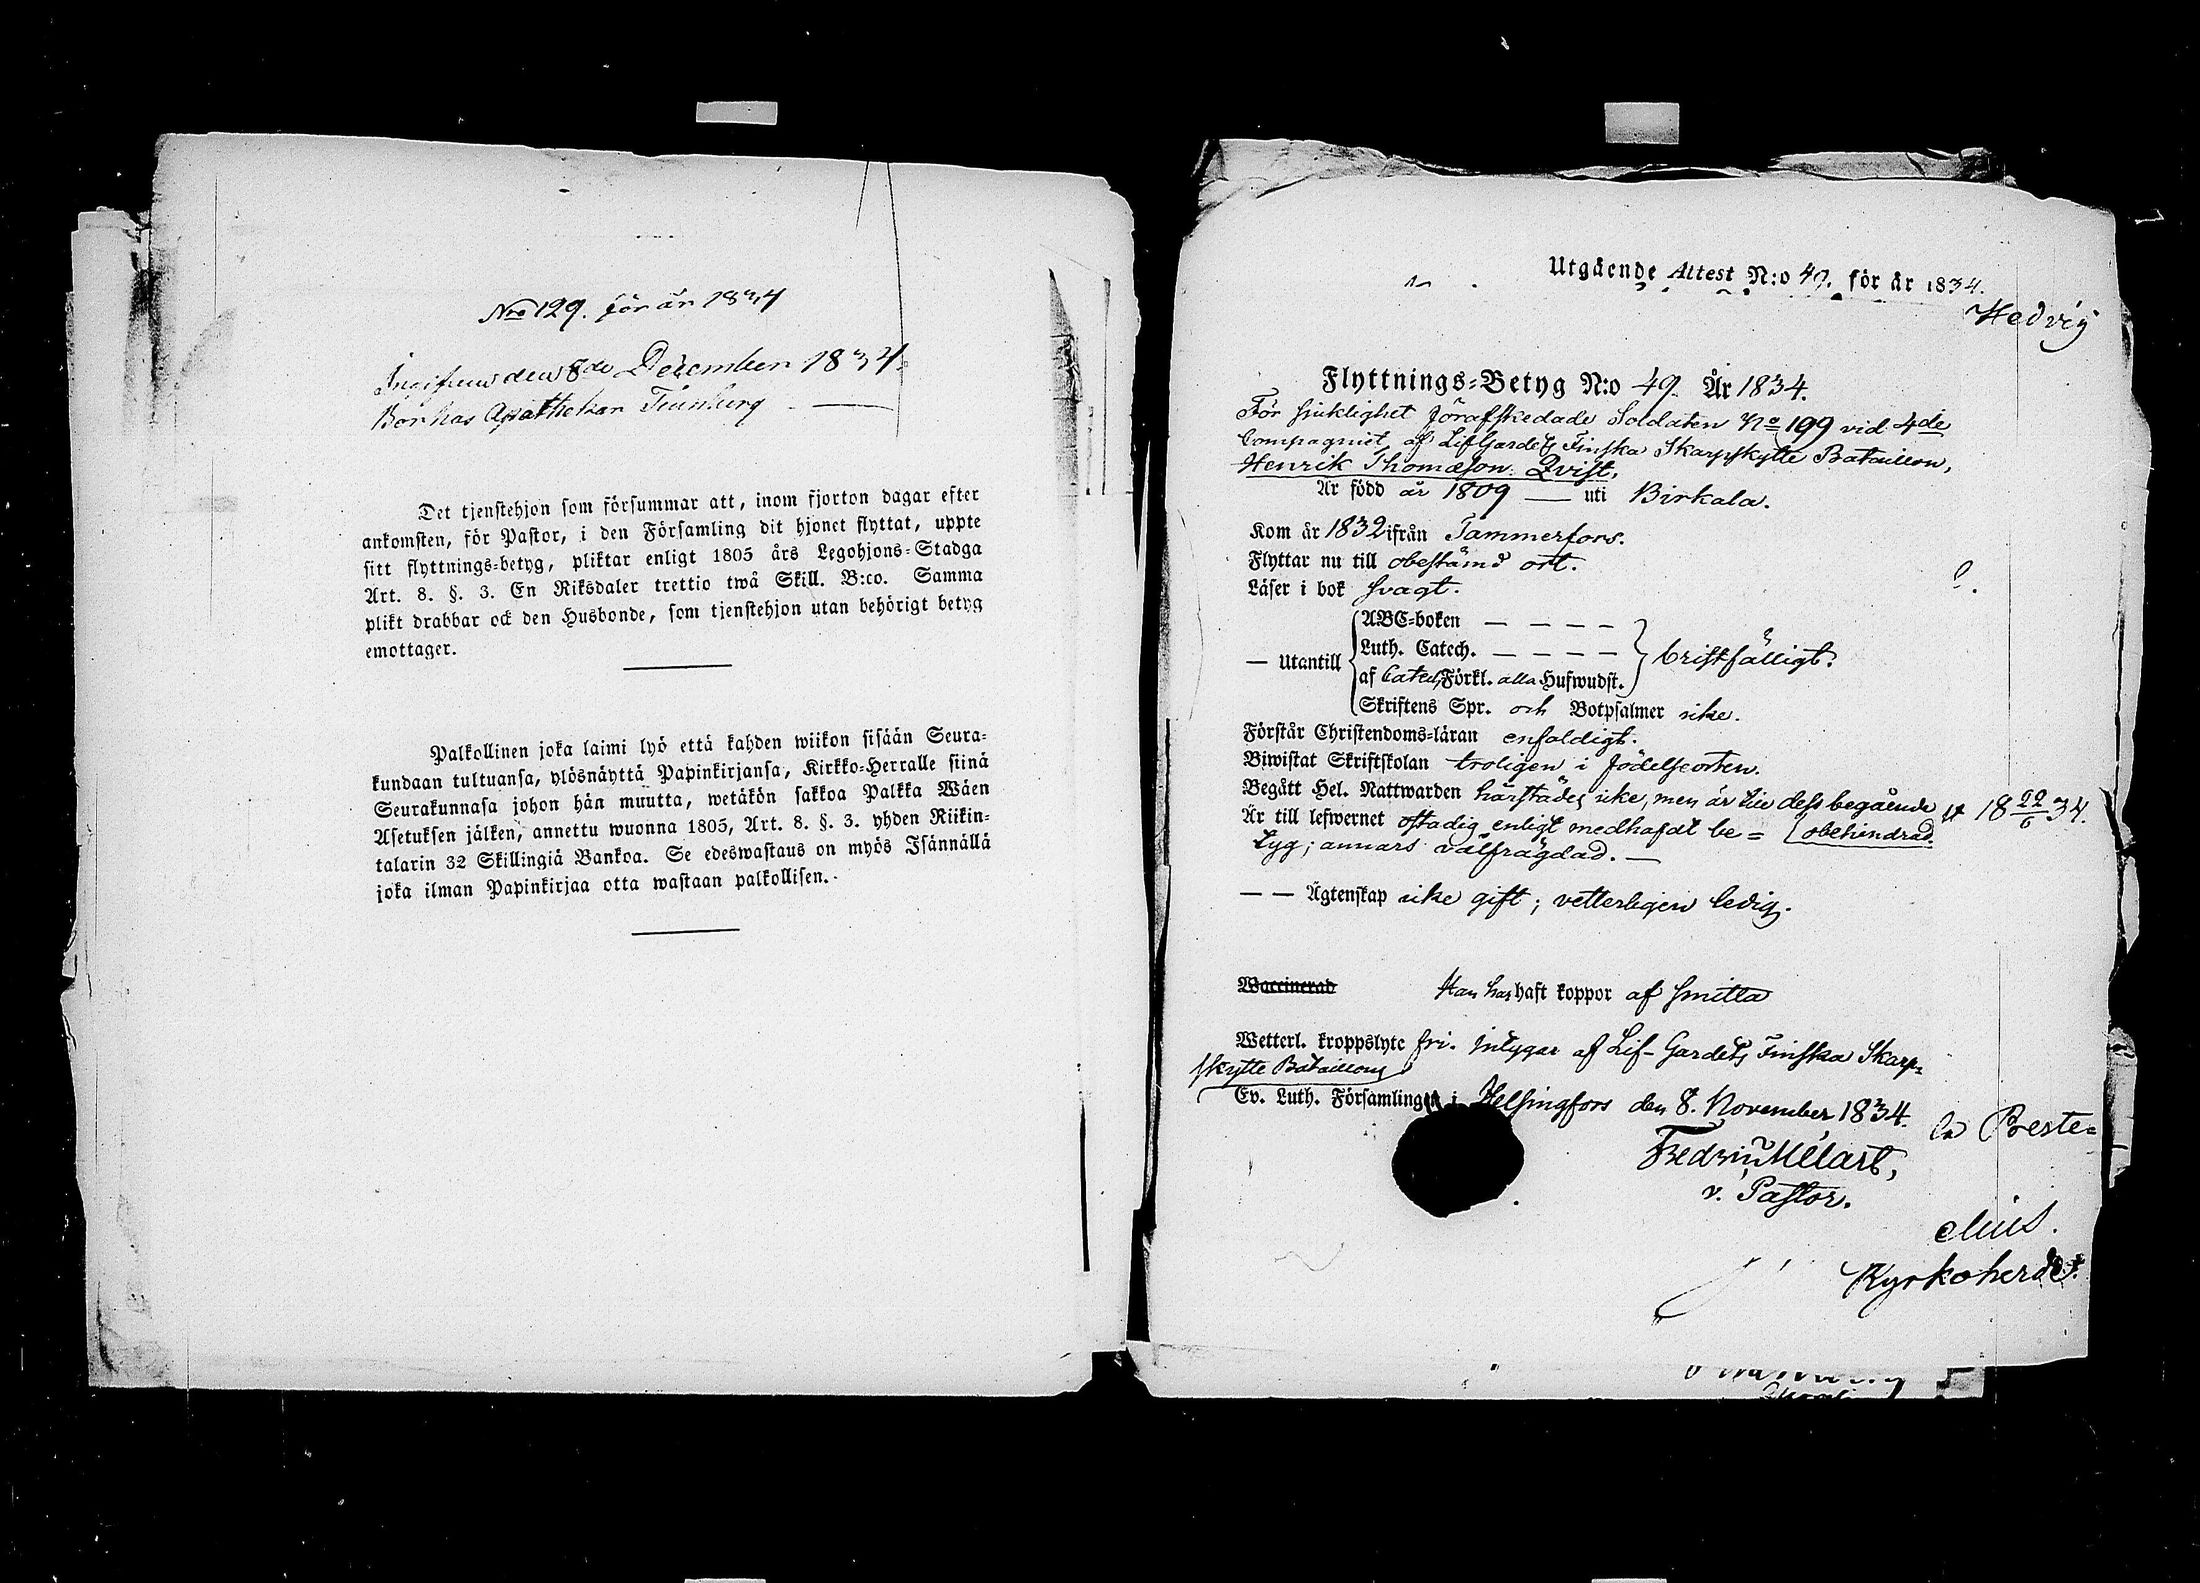 No 129. för år 1834
Ingifven den 8de December 1834.
Borhos Apothekar
Det tjenstehjon som försummar att, inom fjorton dagar efter
ankomsten, för Pastor, i den Församling dit hjonet flyttat, uppte
sitt flyttnings-betyg, pliktar enligt 1805 års Legohjons-Stadga
Art. 8. §. 3. En Riksdaler trettio twå Skill. B:co. Samma
plikt drabbar ock den Husbonde, som tjenstehjon utan behörigt betyg
emottager.
Palkollinen joka laimi lyö että kahden wiikon sisään Seura-
kundaan tultuansa, ylösnäyttä Papinkirjansa, Kirkko-Herralle siinä
Seurakunnasa johon hän muutta, wetäkön sakkoa Palkka Wäen
Asetuksen jälken, annettu wuonna 1805, Art. 8. §. 3. yhden Riikin-
talarin 32 Skillingiä Bankoa. Se edeswastaus on myös Isännällä
joka ilman Papinkirjaa otta wastaan palkollisen.
Utgående Attest N:o 49. för år 1834.
Hedvig
Flyttnings-Betyg N:o 49. År 1834.
För sjuklighet förafskedade Soldaten No 199 vid 4de
Compagniet af LifGardets Finska Skarpskytte Bataillon,
Henrik Thomæson Qvist,
Är född år 1809 — uti Birkala.
Kom år 1832 ifrån Tammerfors.
Flyttar nu till obestämd ort.
Läser i bok svagt.
— Utantill
ABC-boken — — — —
Luth. Catech. — — — — bristfälligt.
af Catech. Förkl. alla Hufwudst.
Skriftens Spr. och Botpsalmer icke.
Förstår Christendoms-läran enfaldigt.
Biwistat Skriftskolan troligen i födelseorten.
Begått Hel. Nattwarden härstädes icke, men är till dess begående
obehindrad.
18 22/6 34.
Är till lefwernet ostadig enligt medhafdt be=
tyg; annars välfrägdad. —
— — Ägtenskap icke gift; vetterligen ledig.
Waccinerad Han har haft koppor af smitta
Wetterl. kroppslyte fri. Intygar af Lif-Gardets Finska Skarp-
skytte Bataillons
Ev. Luth. Församlingen i Helsingfors den 8. November 1834.
Fredric Mélart,
v. Pastor.
Preste=
elius.
Kyrkoherde.